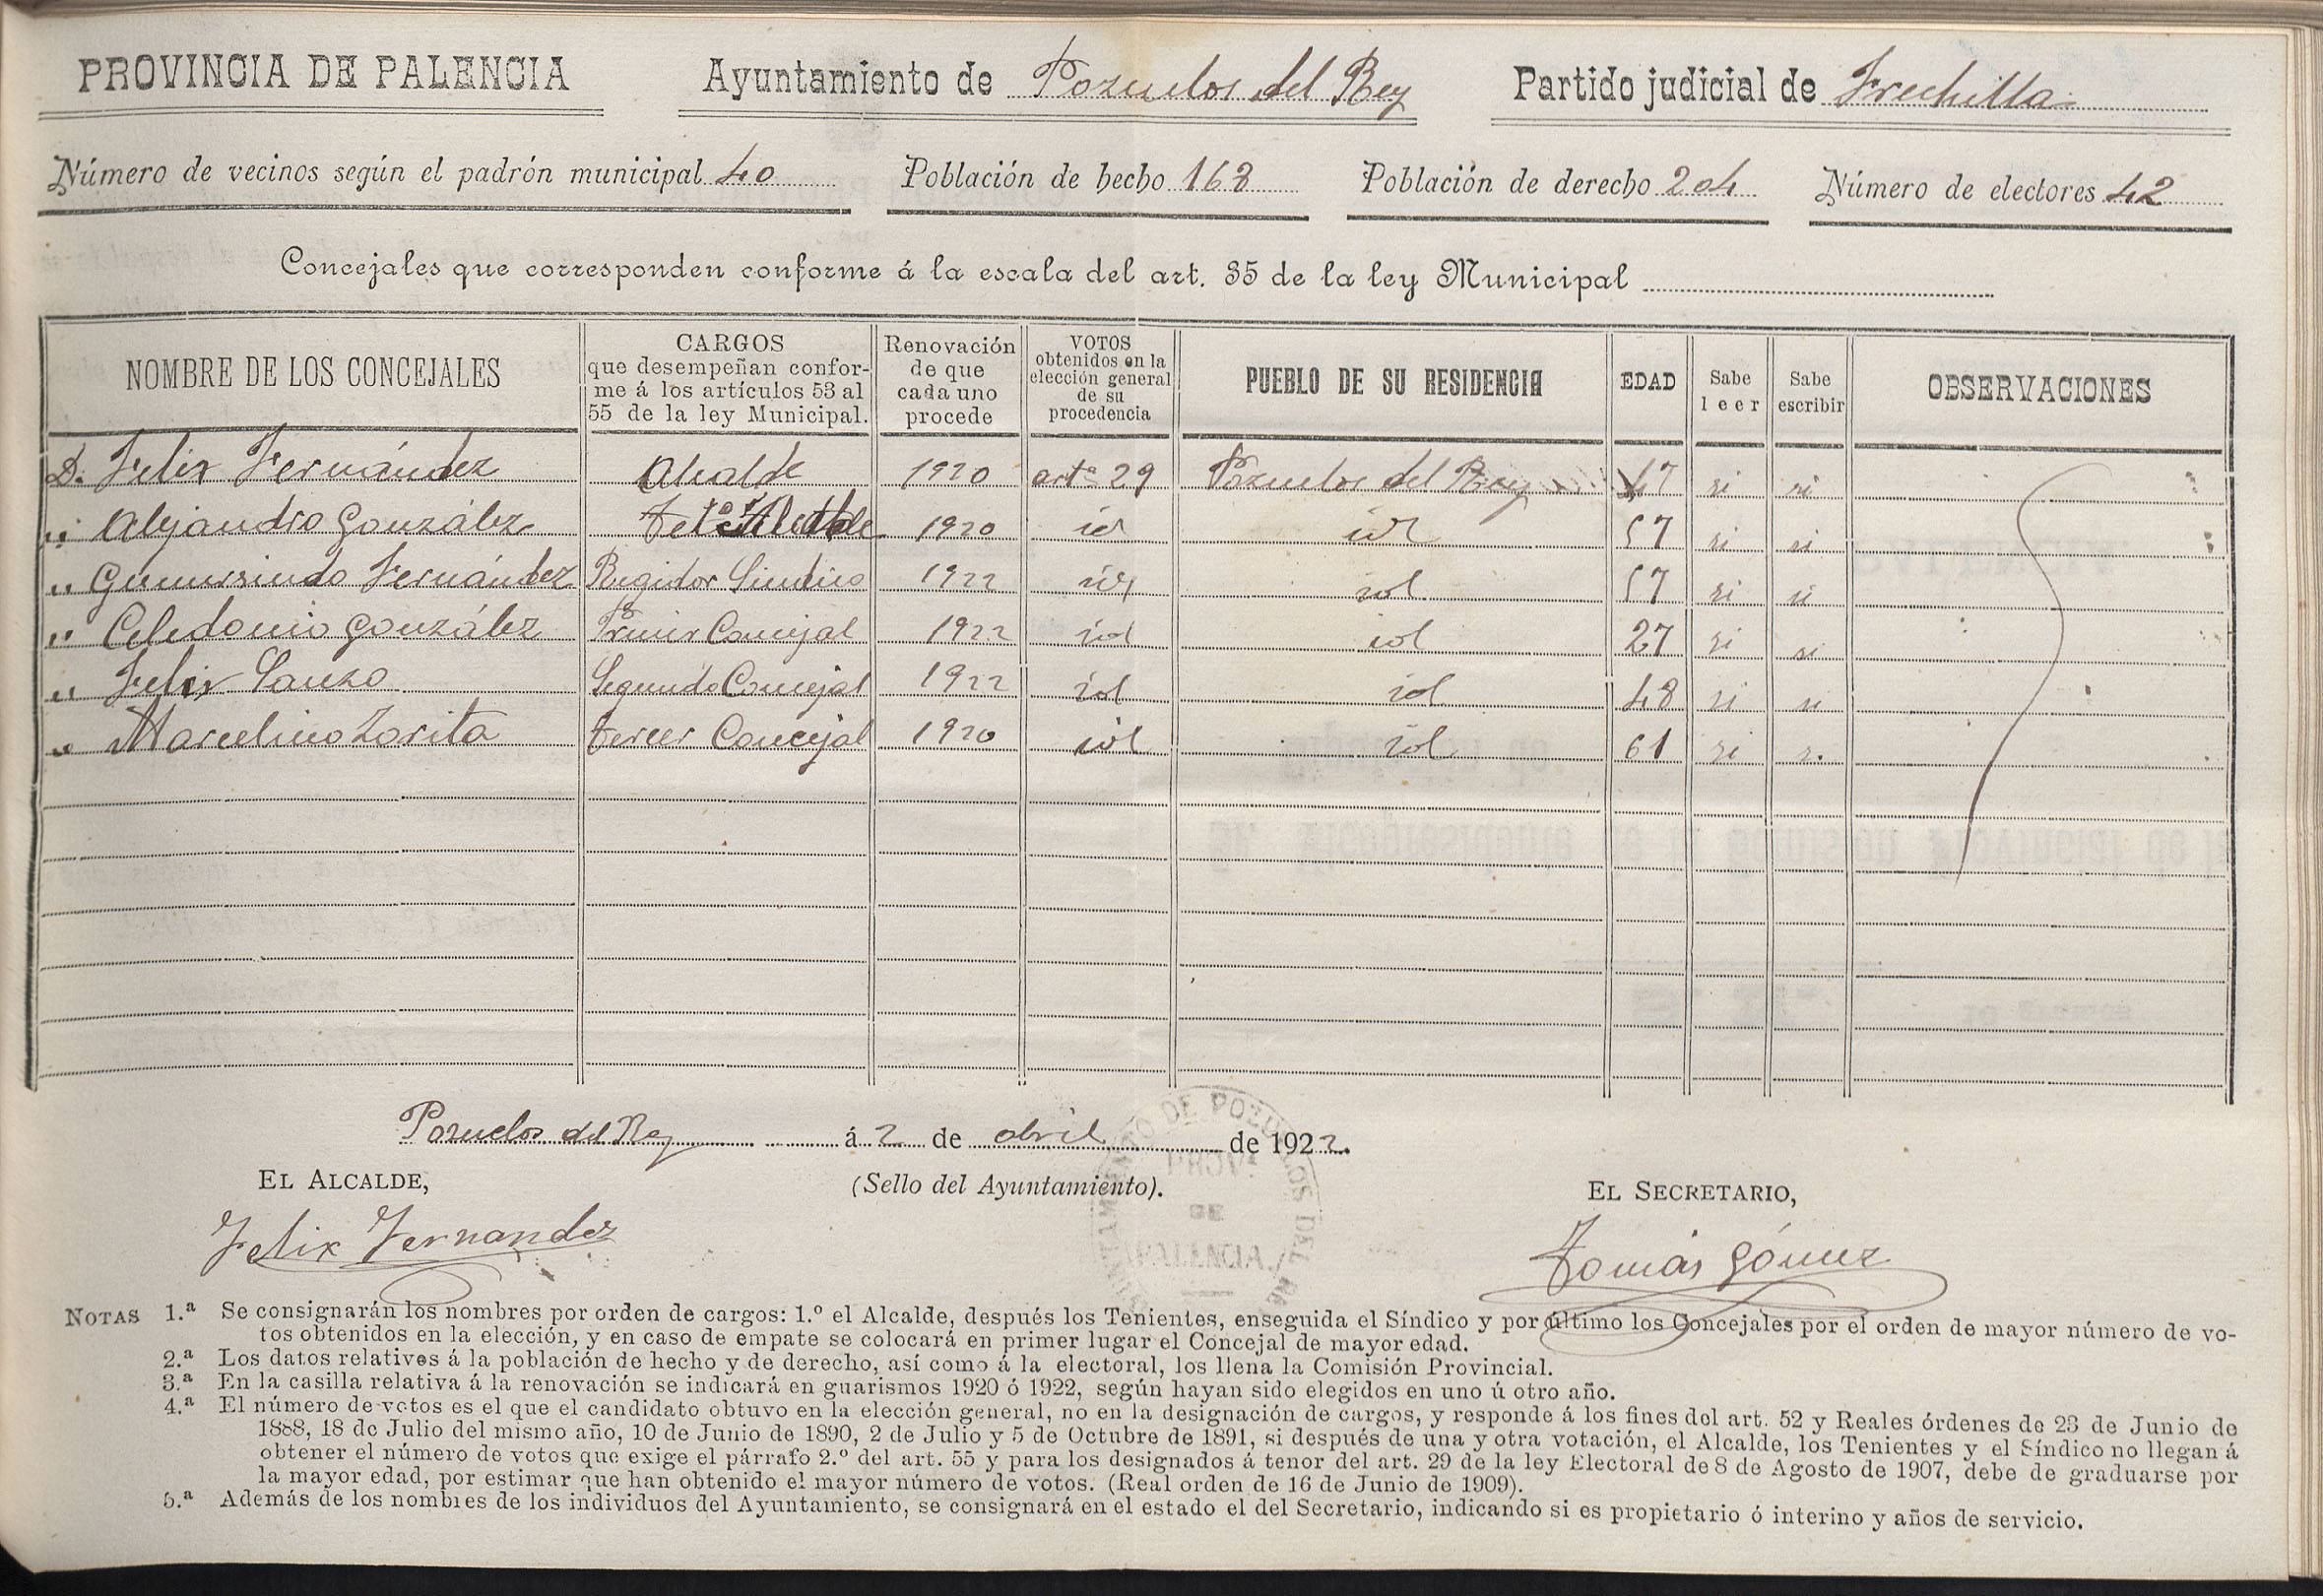 PROVINCIA DE PALENCIA Ayuntamiento de Pozuelos del Rey Partido judicial de Frechilla
Número de vecinos según el padrón municipal 40 Población de hecho 168 Población de derecho 204 Número de electores 42
Concejales que corresponden conforme á la escala del art. 35 de la ley Municipal
NOMBRE DE LOS CONCEJALES
CARGOS
que desempeñan confor-
me á los artículos 53 al
55 de la ley Municipal.
Renovación
de que
cada uno
procede
VOTOS
obtenidos en la
elección general
de su
procedencia
PUEBLO DE SU RESIDENCIA
EDAD
Sabe
leer
Sabe
escribir
OBSERVACIONES
D. Felix Fernández Alcalde 1920 artº 29 Pozuelos del Rey 47 si si
" Alejandro González Alcalde 1920 id id 57 si si
" Gumersindo Fernández Regidor Sindico 1922 id id 57 si si
" Celedonio González Primer Concejal 1922 id id 27 si si
" Felix Sanzo Segundo Concejal 1922 id id 48 si si
" Marcelino Zorita tercer Concejal 1920 id id 61 si
Pozuelos del Rey á 2 de abril de 1922.
EL ALCALDE, (Sello del Ayuntamiento). EL SECRETARIO,
Felix Fernandez
Tomás Gómez
AYUNTAMIENTO DE POZUELOS DEL REY
PROVª
DE
PALENCIA
NOTAS 1.ª Se consignarán los nombres por orden de cargos: 1.º el Alcalde, después los Tenientes, enseguida el Síndico y por último los Concejales por el orden de mayor número de vo-
tos obtenidos en la elección, y en caso de empate se colocará en primer lugar el Concejal de mayor edad.
2.ª Los datos relativos á la población de hecho y de derecho, así como á la electoral, los llena la Comisión Provincial.
3.ª En la casilla relativa á la renovación se indicará en guarismos 1920 ó 1922, según hayan sido elegidos en uno ú otro año.
4.ª El número de votos es el que el candidato obtuvo en la elección general, no en la designación de cargos, y responde á los fines del art. 52 y Reales órdenes de 23 de Junio de
1888, 18 de Julio del mismo año, 10 de Junio de 1890, 2 de Julio y 5 de Octubre de 1891, si después de una y otra votación, el Alcalde, los Tenientes y el Síndico no llegan á
obtener el número de votos que exige el párrafo 2.º del art. 55 y para los designados á tenor del art. 29 de la ley Electoral de 8 de Agosto de 1907, debe de graduarse por
la mayor edad, por estimar que han obtenido el mayor número de votos. (Real orden de 16 de Junio de 1909).
5.ª Además de los nombres de los individuos del Ayuntamiento, se consignará en el estado el del Secretario, indicando si es propietario ó interino y años de servicio.